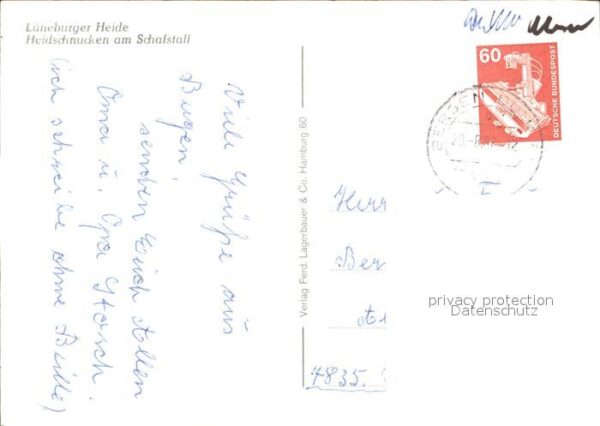 Lüneburger Heide
Heidschnucken am Schafstall
Viele Grüße aus
senden Euch allen
Oma u. Opa
(ich schreibe ohne Brille)
Verlag Ferd. Lagerbauer & Co. Hamburg 60
60
DEUTSCHE BUNDESPOST
BERGEN
Herr
Ber
7835
privacy protection
Datenschutz